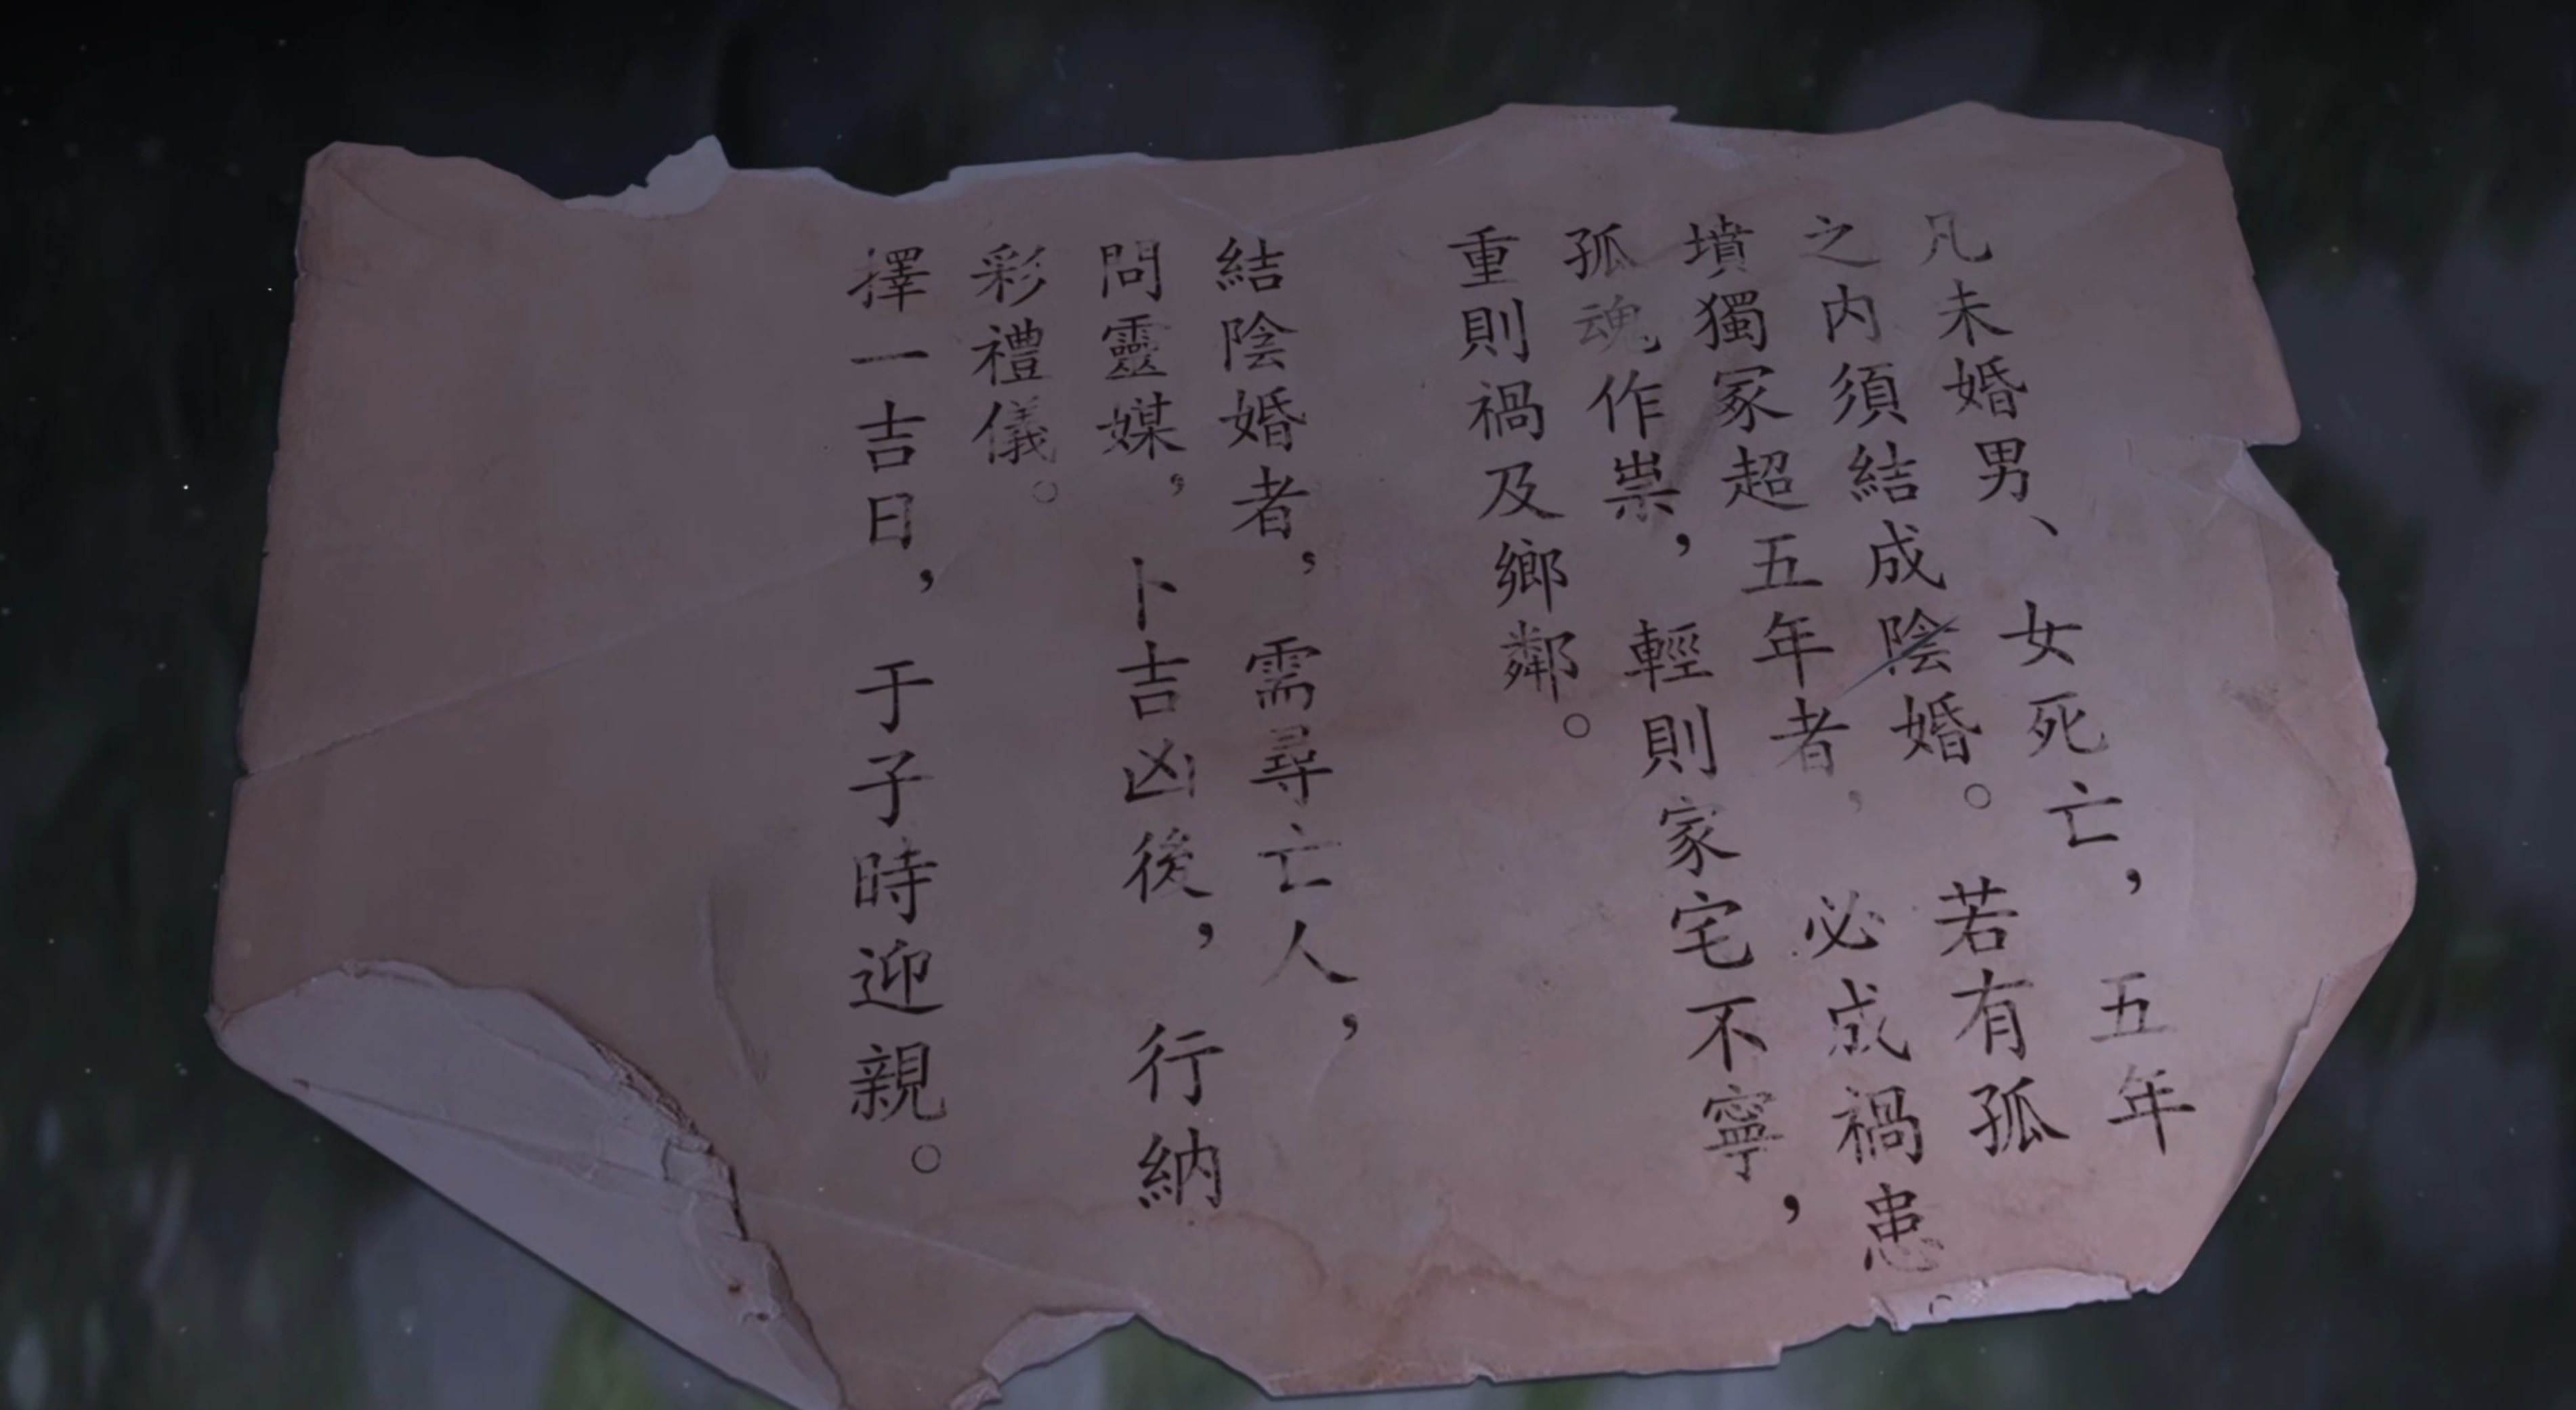 凡未婚男、女死亡，五年
之内須結成陰婚。若有孤
墳獨冢超五年者，必成禍患。
孤魂作祟，輕則家宅不寧，
重則禍及鄉鄰。
結陰婚者，需尋亡人，
問靈媒，卜吉凶後，行納
彩禮儀。
擇一吉日，于子時迎親。